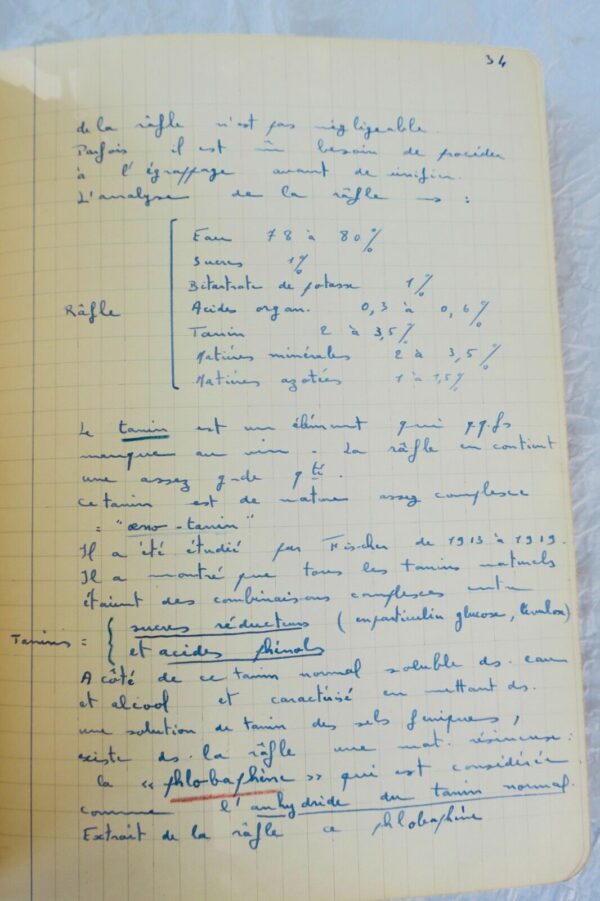 34
de la râfle n'est pas négligeable.
Parfois il est besoin de procéder
à l'égrappage avant de vinifier.
L'analyse de la râfle → :
Eau 78 à 80%
Sucres 1%
Bitartrate de potasse 1%
Râfle
Acides organ. 0,3 à 0,6%
Tanin 2 à 3,5%
Matières minérales 2 à 3,5%
Matières azotées 1 à 1,5%
Le tanin est un élément qui qq.fs
manque au vin. La râfle en contient
une assez g-de qté.
Ce tanin est de nature assez complexe
= "œno-tanin"
Il a été étudié par Fischer de 1913 à 1919.
Il a montré que tous les tanins naturels
étaient des combinaisons complexes entre
Tanins = { sucres réducteurs (en particulier glucose, lévulose)
et acides phénols
A côté de ce tanin normal soluble ds. eau
et alcool et caractérisé en mettant ds.
une solution de tanin des sels ferriques,
existe ds. la râfle une mat. résineuse :
la « phlobaphène » qui est considérée
comme l'anhydride du tanin normal.
Extrait de la râfle ce phlobaphène